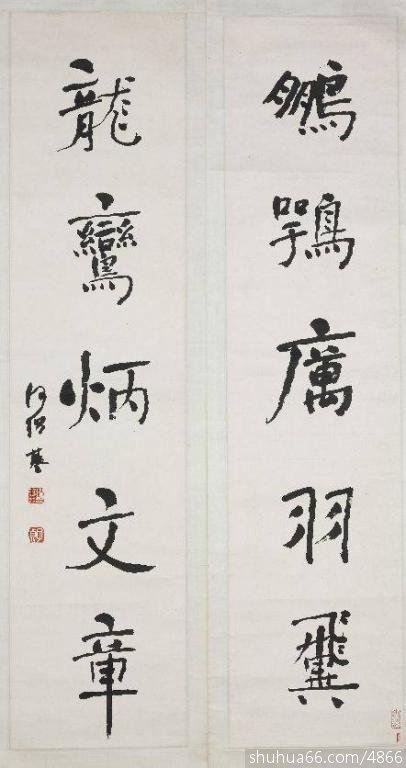 鵬鶚厲羽翼
龍鸞炳文章
何紹基
shuhua66.com/4866